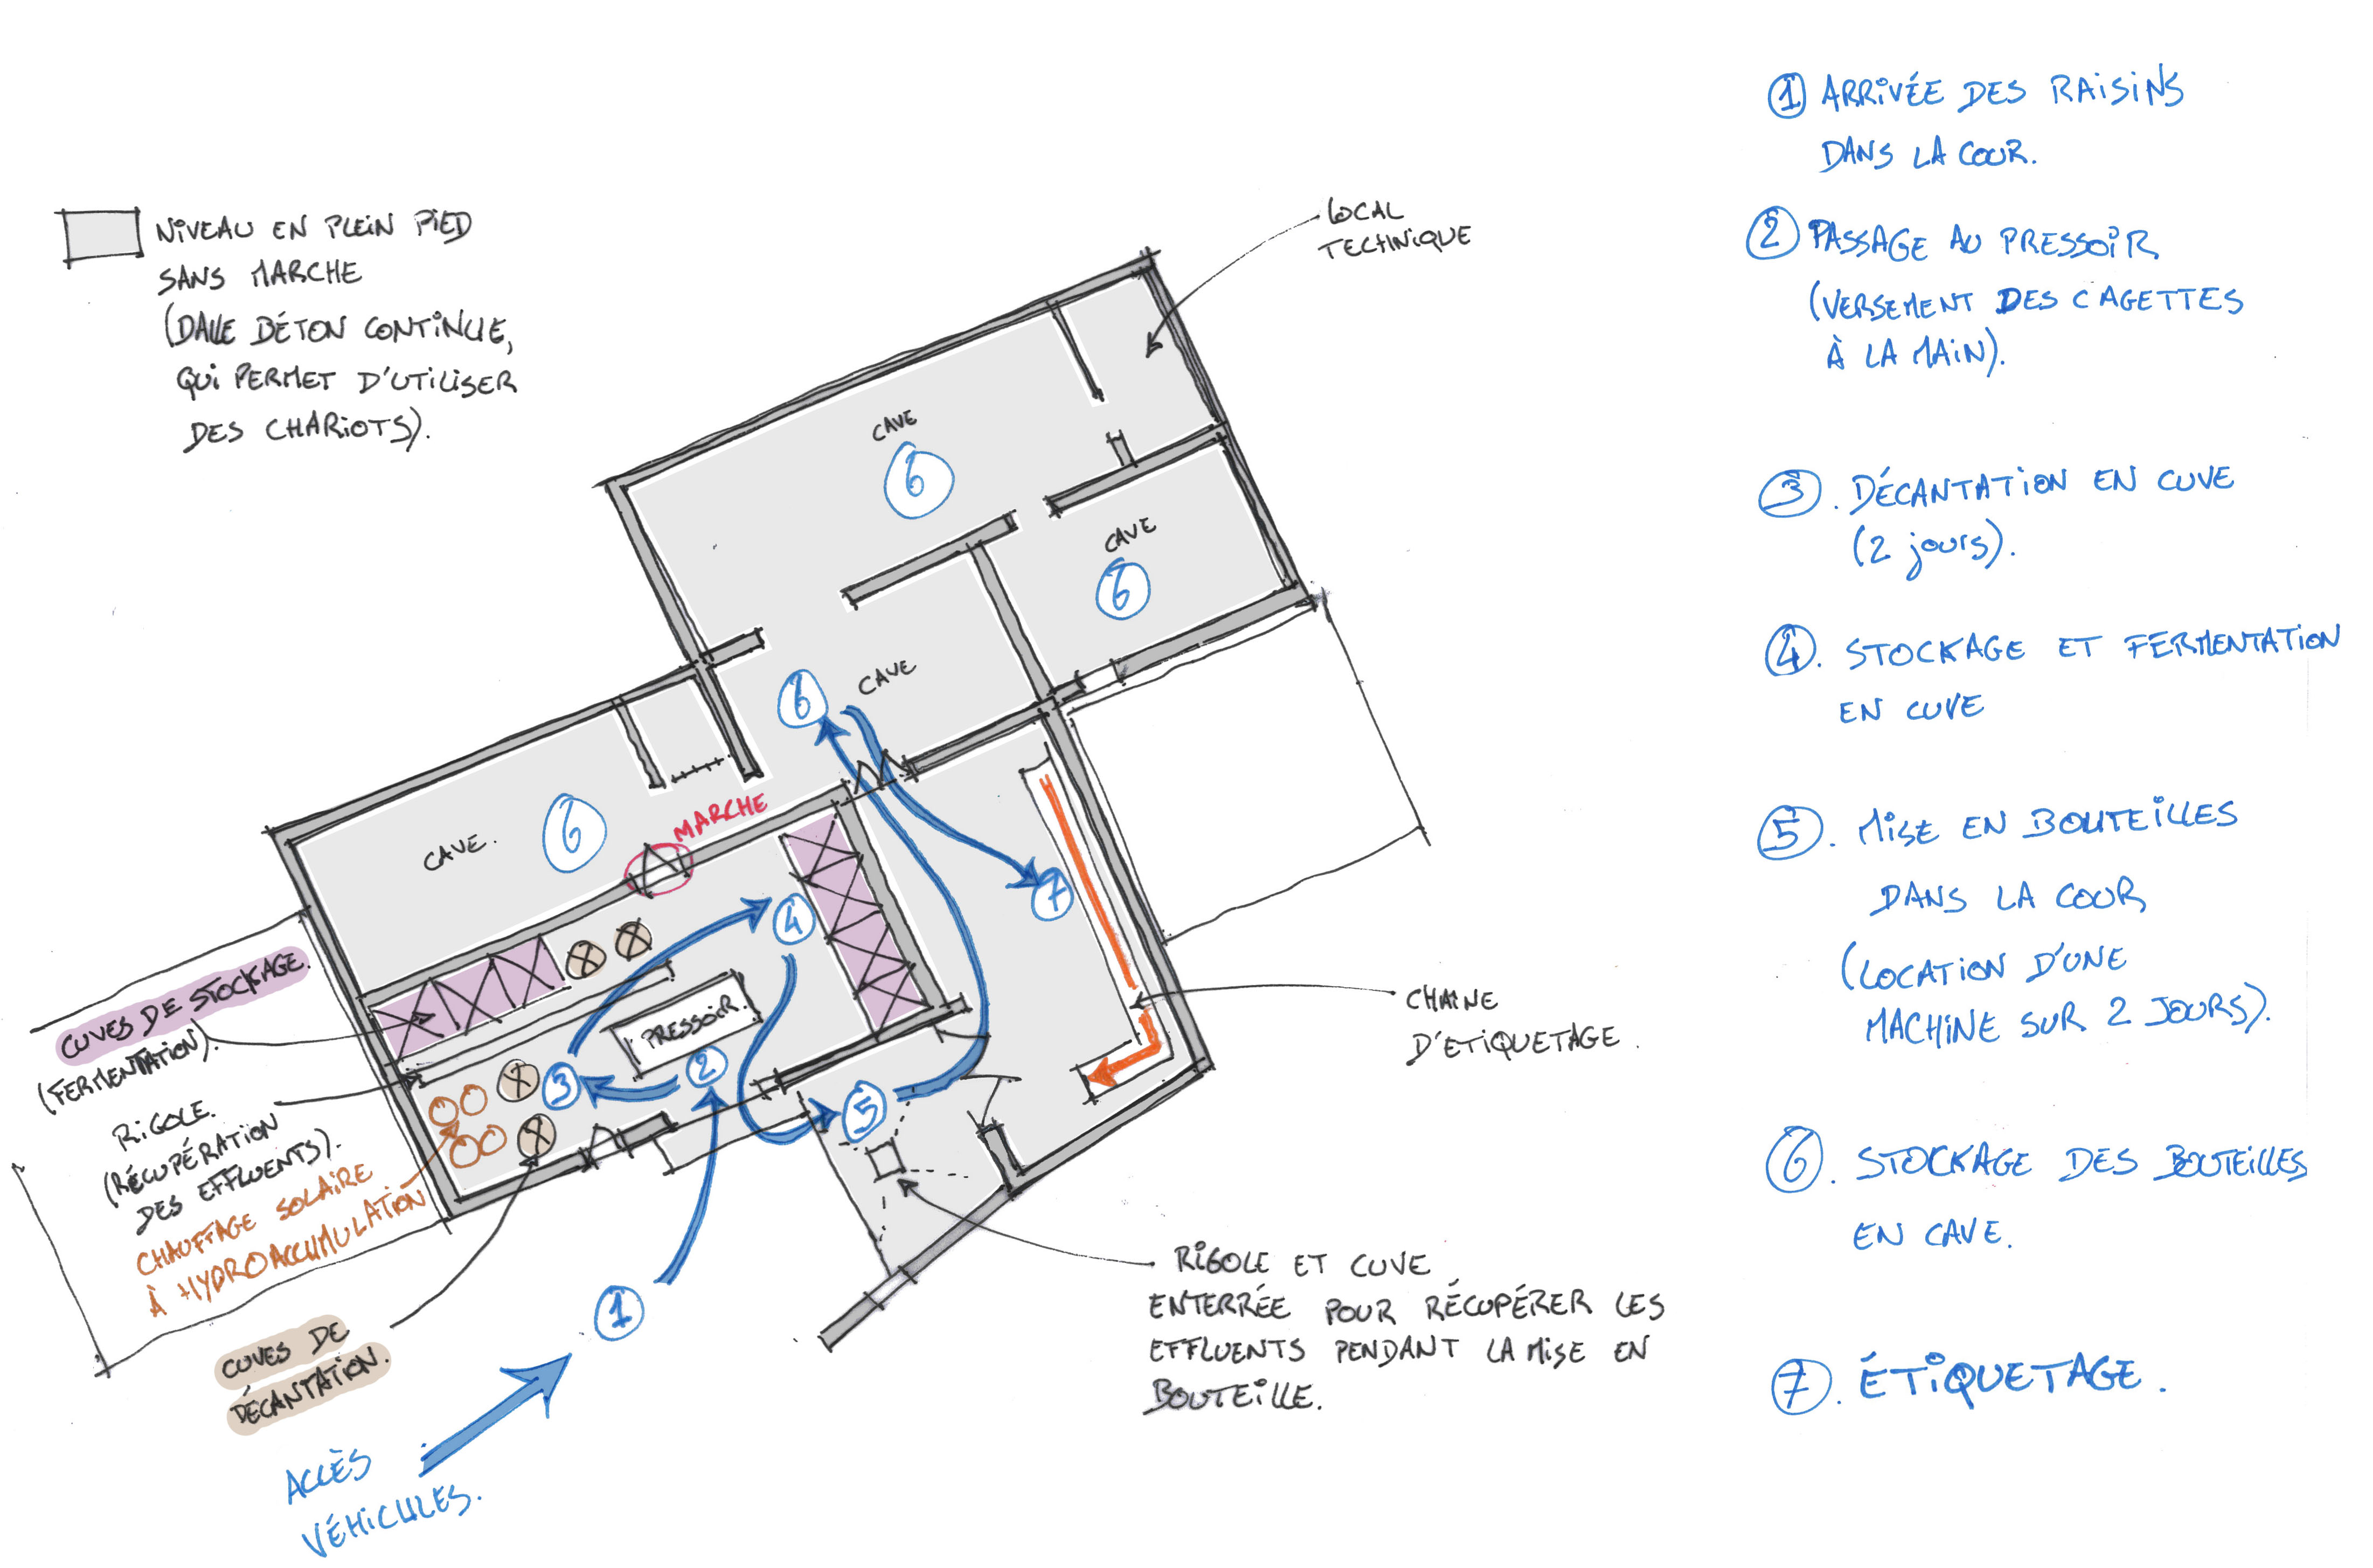 NIVEAU EN PLEIN PIED
SANS MARCHE
(DALLE BÉTON CONTINUE,
QUI PERMET D'UTILISER
DES CHARIOTS).
LOCAL
TECHNIQUE
CAVE
6
CAVE
6
6
CAVE
CAVE.
6
MARCHE
4
7
PRESSOIR.
3
2
5
1
CUVES DE STOCKAGE.
(FERMENTATION).
RIGOLE.
(RÉCUPÉRATION
DES EFFLUENTS).
CHAUFFAGE SOLAIRE
À HYDROACCUMULATION
CUVES DE
DÉCANTATION.
ACCÈS
VÉHICULES.
CHAINE
D'ETIQUETAGE.
RIGOLE ET CUVE
ENTERRÉE POUR RÉCUPÉRER LES
EFFLUENTS PENDANT LA MISE EN
BOUTEILLE.
1 ARRIVÉE DES RAISINS
DANS LA COUR.
2 PASSAGE AU PRESSOIR
(VERSEMENT DES CAGETTES
À LA MAIN).
3. DÉCANTATION EN CUVE
(2 jours).
4. STOCKAGE ET FERMENTATION
EN CUVE
5. MISE EN BOUTEILLES
DANS LA COUR
(LOCATION D'UNE
MACHINE SUR 2 JOURS).
6. STOCKAGE DES BOUTEILLES
EN CAVE.
7. ÉTIQUETAGE.